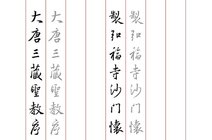 製弘福寺沙门懷
製弘福寺沙门懷
大唐三藏聖教序
大唐三藏聖教序